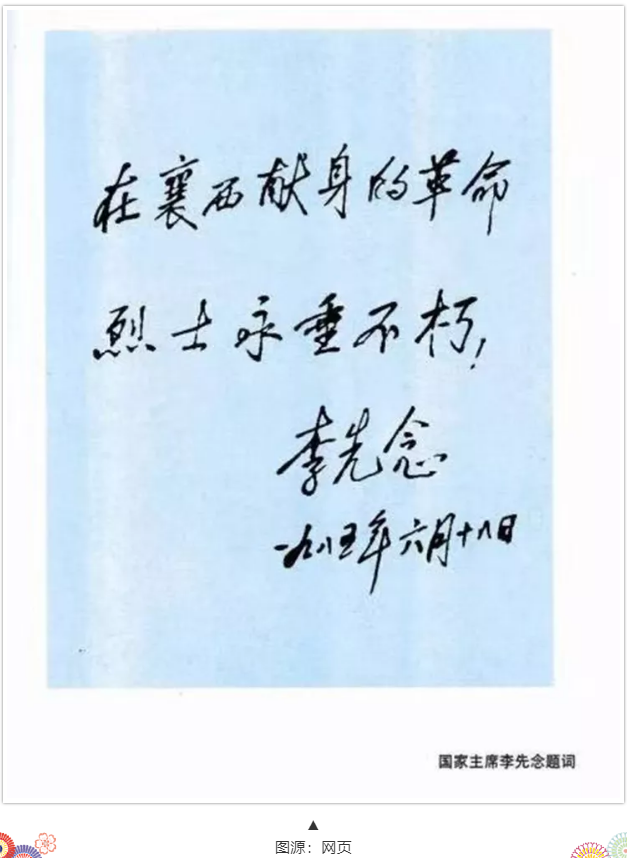 在襄西献身的革命
烈士永垂不朽！
李先念
一九八五年六月十八日
国家主席李先念题词
▲
图源：网页